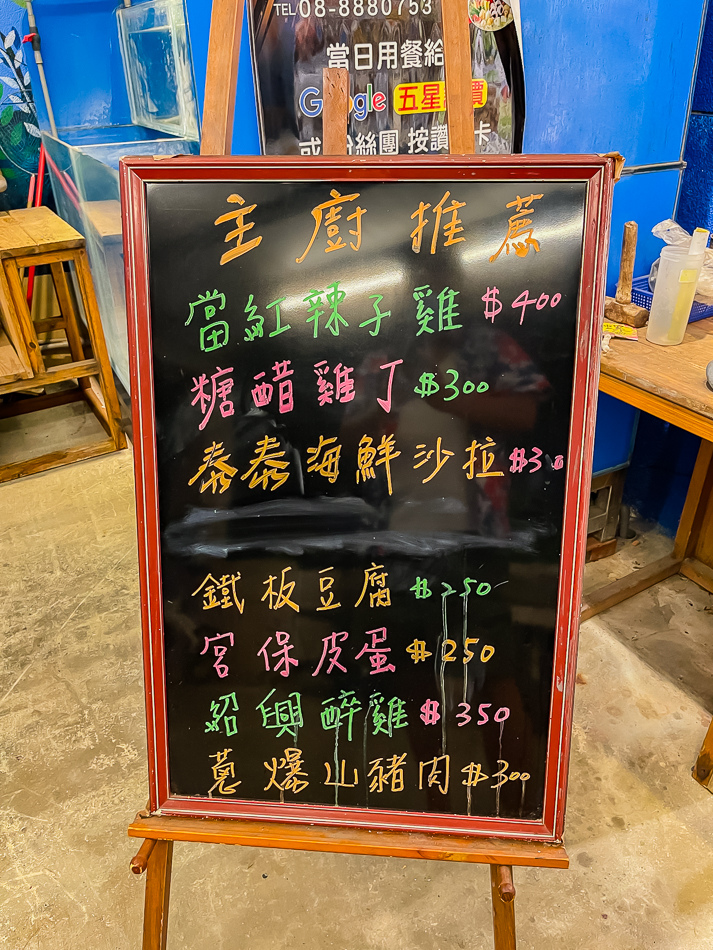 TEL/08-8880753
當日用餐給
Google 五星
按讚 卡
主廚推薦
當紅辣子雞 $400
糖醋雞丁 $300
泰泰海鮮沙拉 $3
鐵板豆腐 $250
宮保皮蛋 $250
紹興醉雞 $350
蔥爆山豬肉 $300